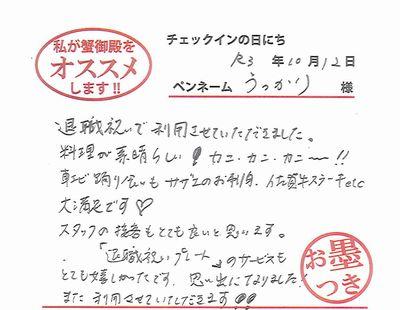 私が蟹御殿を
オススメ
します!!
チェックインの日にち
R3 年 10 月 12 日
ペンネーム うっかり 様
退職祝いで利用させていただきました。
料理が素晴らしい! カニ・カニ・カニ〜!!
車エビ踊り食いもサザエのお刺身、佐賀牛ステーキetc
大満足です♡
スタッフの接客もとても良いと思います。
「退職祝いプレート」のサービスも
とても嬉しかったです。思い出になりました!
また利用させていただきます!!
お墨
つき